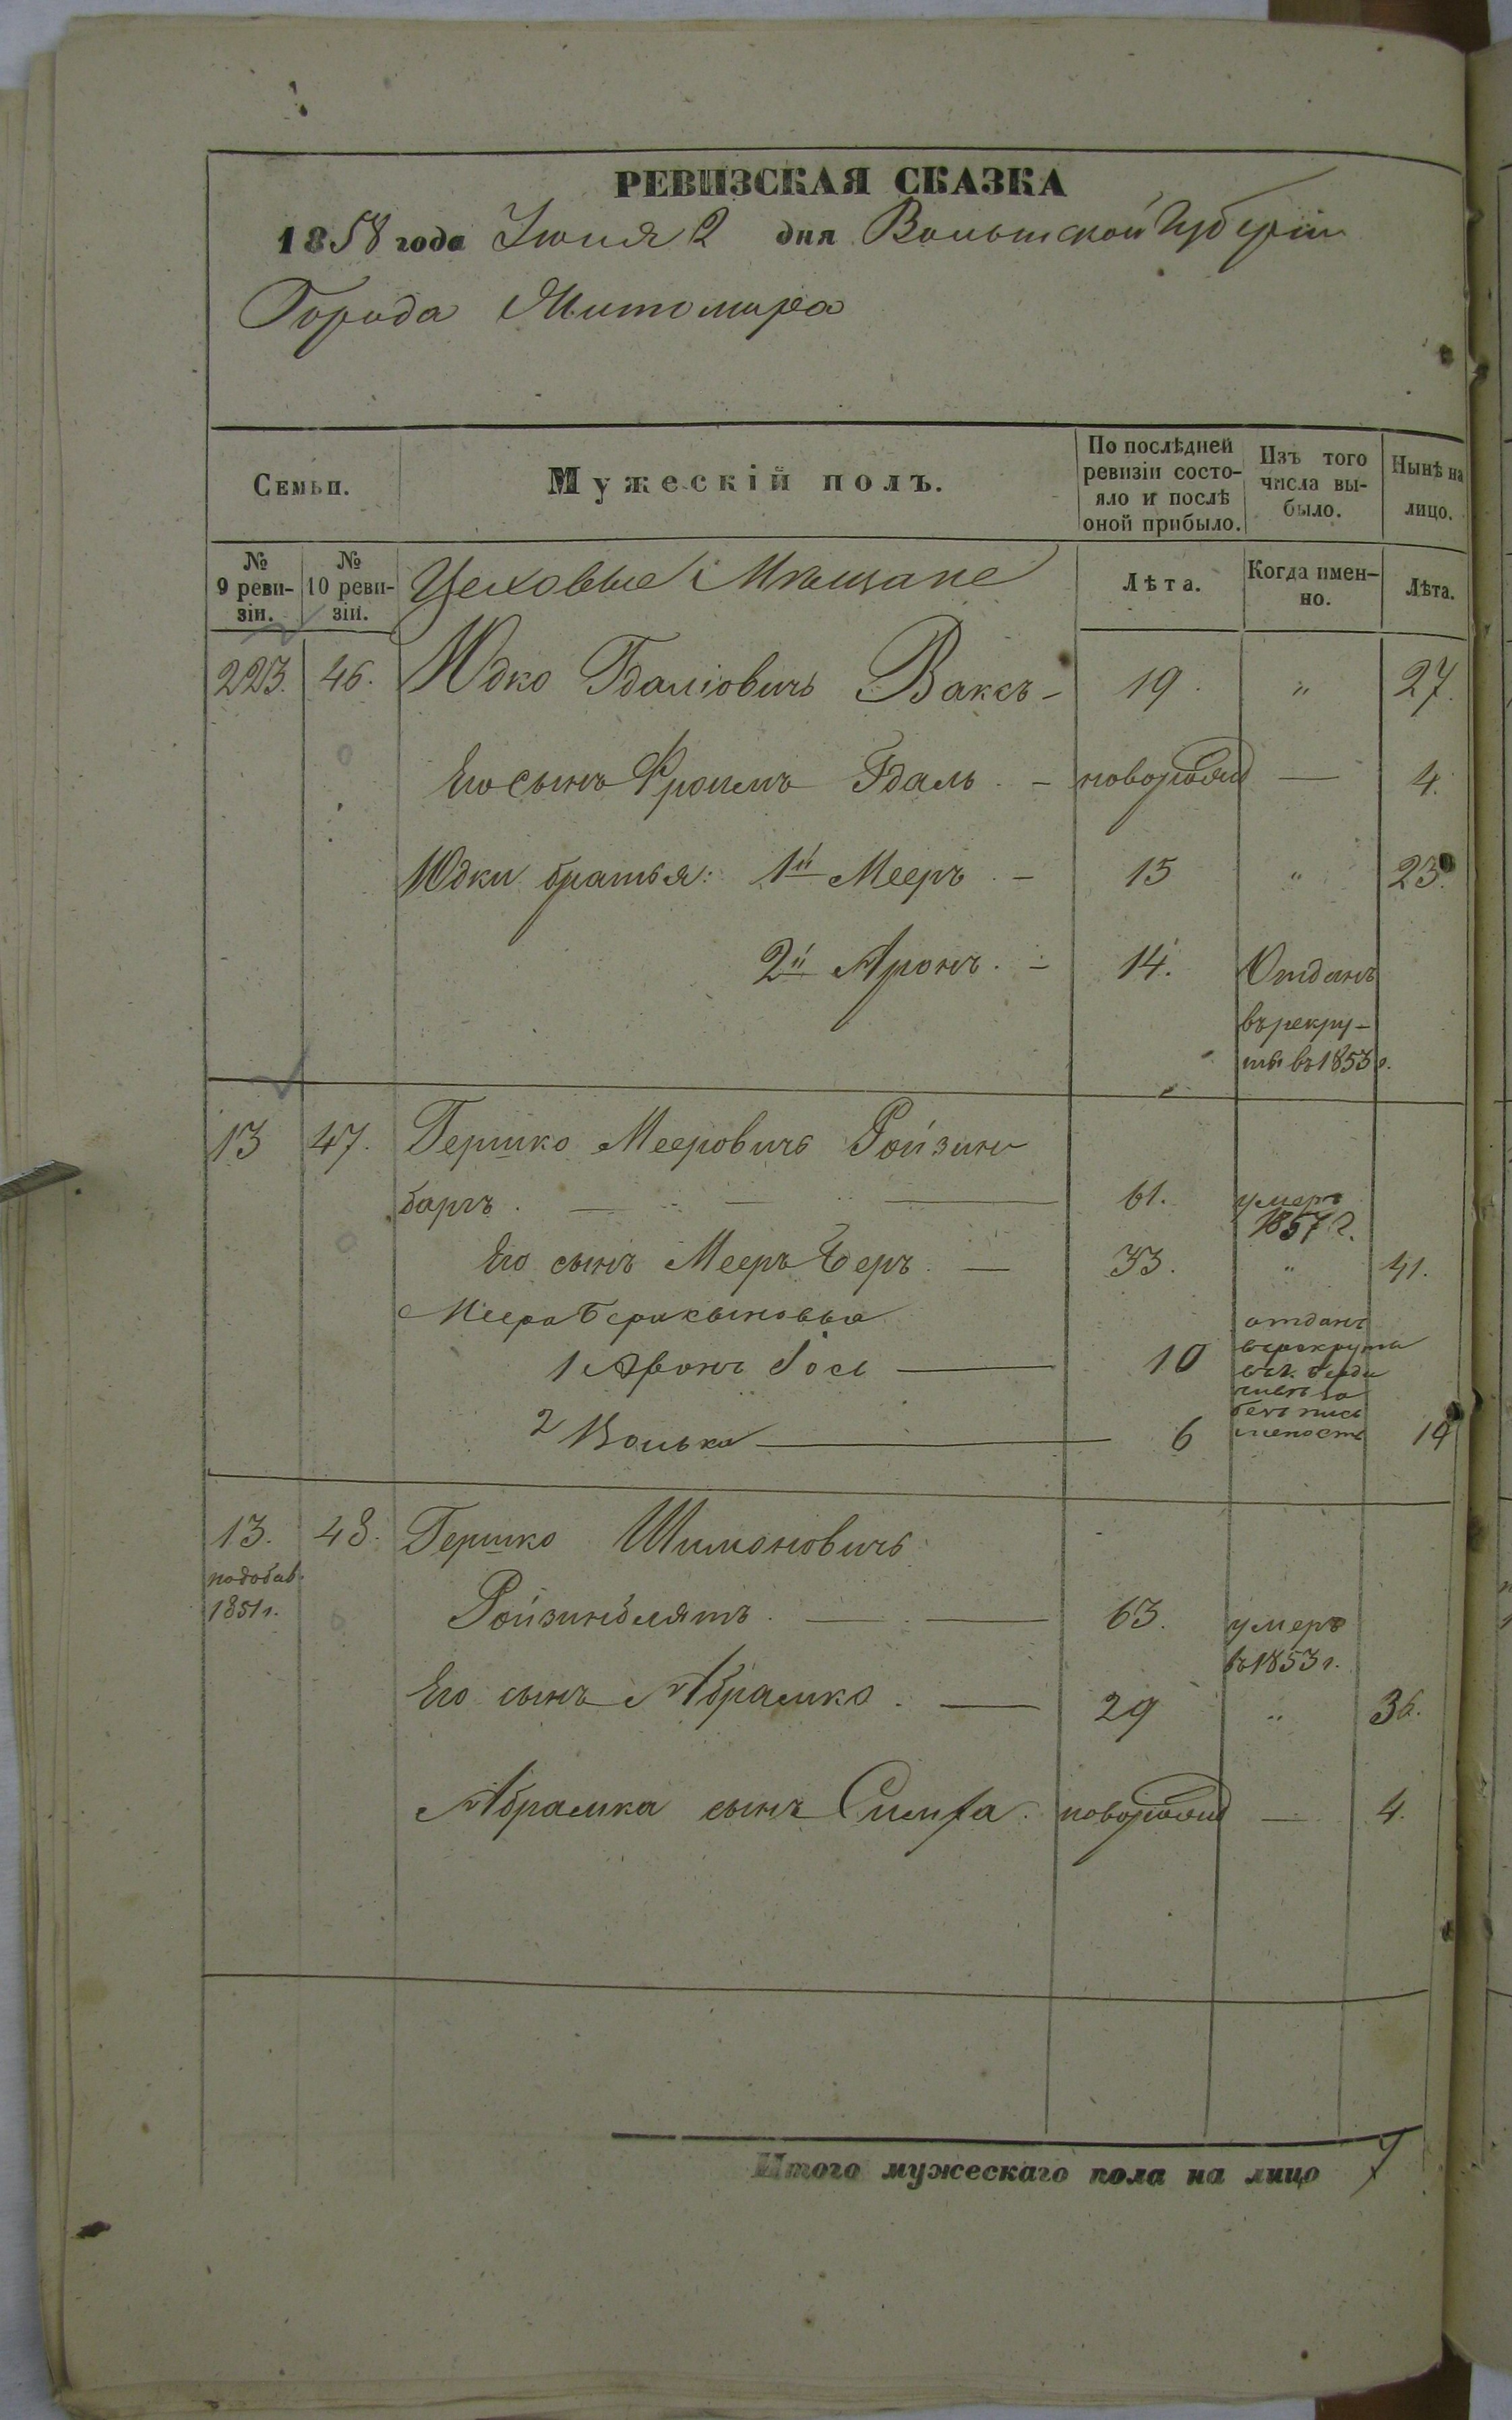 РЕВИЗСКАЯ СКАЗКА
1858 года Июня 2 дня Волынской Губерніи
Города Житомира
Семьи.
Мужескій полъ.
По послѣдней ревизіи состо-
яло и послѣ оной прибыло.
Изъ того числа вы-
было.
Нынѣ на лицо.
№ 9 реви-
зіи.
№ 10 реви-
зіи.
Цеховые Мѣщане
Лѣта.
Когда имен-
но.
Лѣта.
223. 46. Юдко Гдаліовичъ Ваксъ - 19. " 27.
Его сынъ Фроимъ Гдаль. - новорожд — 4.
Юдки братья: 1й Мееръ - 15 " 23.
2й Аронъ. - 14. Отданъ
въ рекру-
ты въ 1853 г.
13 47. Гершко Мееровичъ Ройзин
баргъ. — 61. умеръ
1857 г.
Его сынъ Мееръ Беръ — 33. " 41.
Меера Бера сыновья
1 Аронъ Іось — 10 отданъ
2 Волько — 6 14
13. 48. Гершко Шимоновичъ
подобав.
1851 г.
Ройзинблятъ. — 63. умеръ
въ 1853 г.
Его сынъ Абрамко. — 29 " 36.
Абрамка сынъ Симха. новорожд — 4.
Итого мужескаго пола на лицо 7